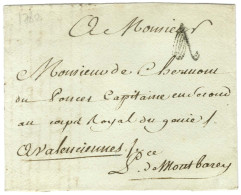 A Monsieur
Monsieur de Chermont
du Poncet Capitaine en Second
au corps Royal du genie
a valenciennes
de Montbarey